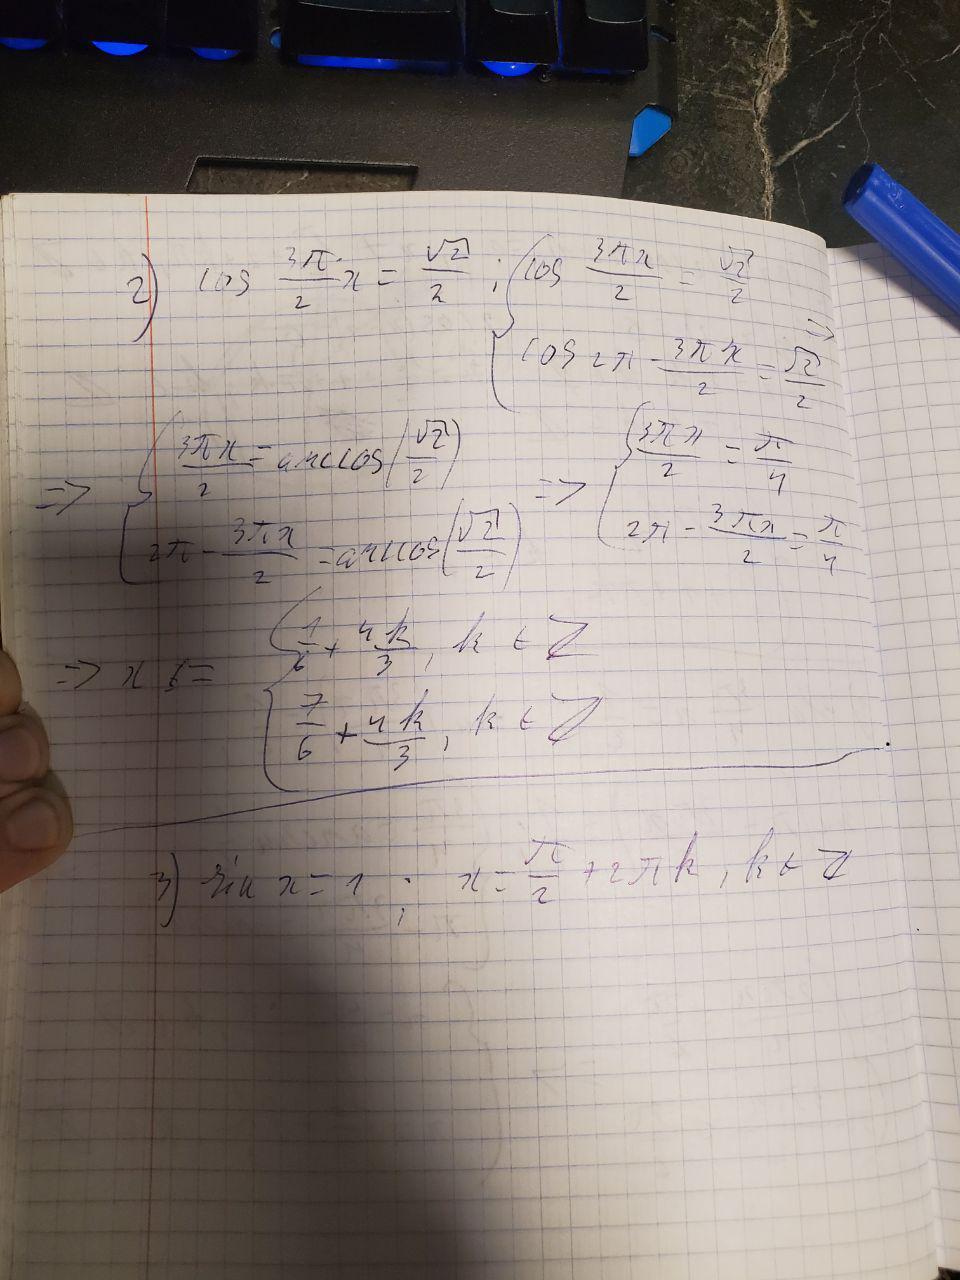 2) cos 3π·x/2 = √2/2 ; { cos 3πx/2 = √2/2
cos 2π - 3πx/2 = √2/2 =>
=> { 3πx/2 = arccos(√2/2) => { 3πx/2 = π/4
2π - 3πx/2 = arccos(√2/2) 2π - 3πx/2 = π/4
=> x = { 1/6 + 4k/3, k ∈ Z
7/6 + 4k/3, k ∈ Z
3) sin x = 1 ; x = π/2 + 2πk, k ∈ Z